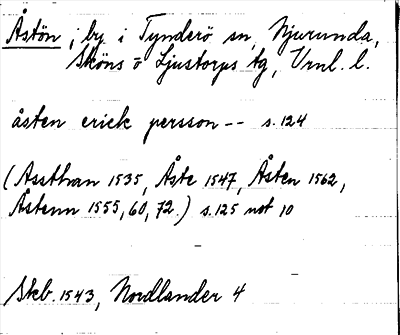 Åstön ; by i Tynderö sn, Njurunda,
Sköns o Ljustorps tg, Vrnl. l.
åsten erick persson -- s. 124
(Assthan 1535, Åste 1547, Åsten 1562,
Åstenn 1555, 60, 72.) s. 125 not 10
Skb. 1543, Nordlander 4